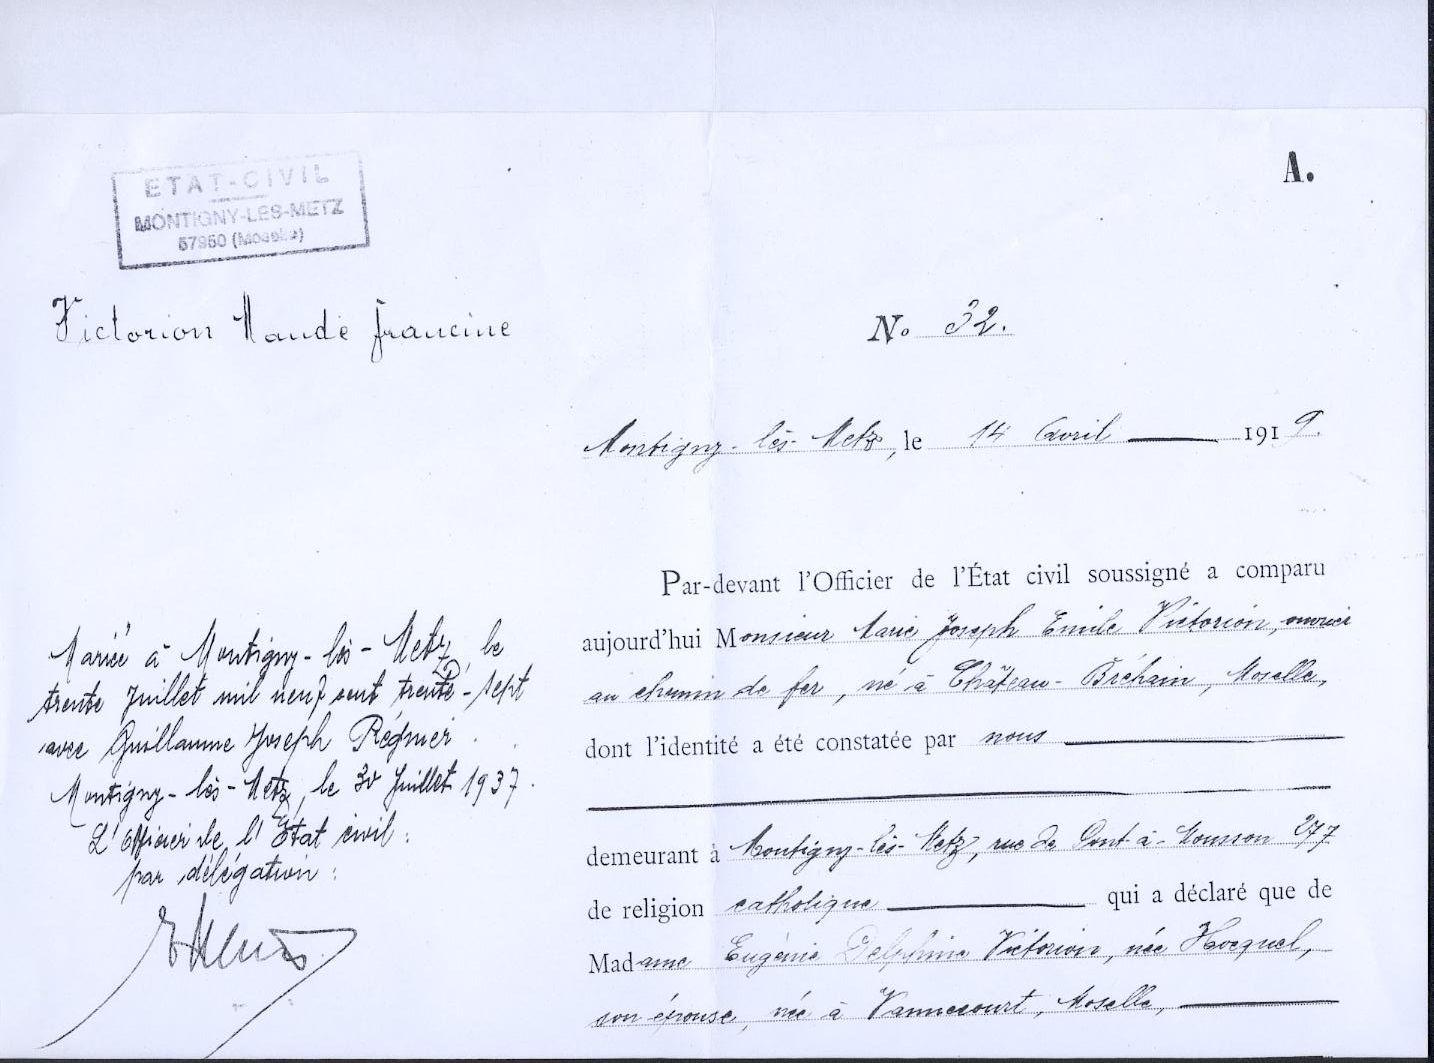 A.
ETAT-CIVIL
MONTIGNY-LES-METZ
57950 (Moselle)
Victorion Maude francine
No 32.
Montigny-lès-Metz, le 14 Avril 1919.
Par-devant l'Officier de l'État civil soussigné a comparu
aujourd'hui Monsieur Marie Joseph Emile Victorion, ouvrier
au chemin de fer, né à Château-Bréhain, Moselle,
dont l'identité a été constatée par nous
demeurant à Montigny-lès-Metz, rue de Pont-à-Mousson 277
de religion catholique qui a déclaré que de
Madame Eugénie Delphine Victorion, née Hocquel,
son épouse, née à Vannecourt, Moselle,
Mariée à Montigny-lès-Metz, le
trente Juillet mil neuf cent trente-sept
avec Guillaume Joseph Régnier.
Montigny-lès-Metz, le 30 Juillet 1937.
L'officier de l'Etat civil:
par délégation: